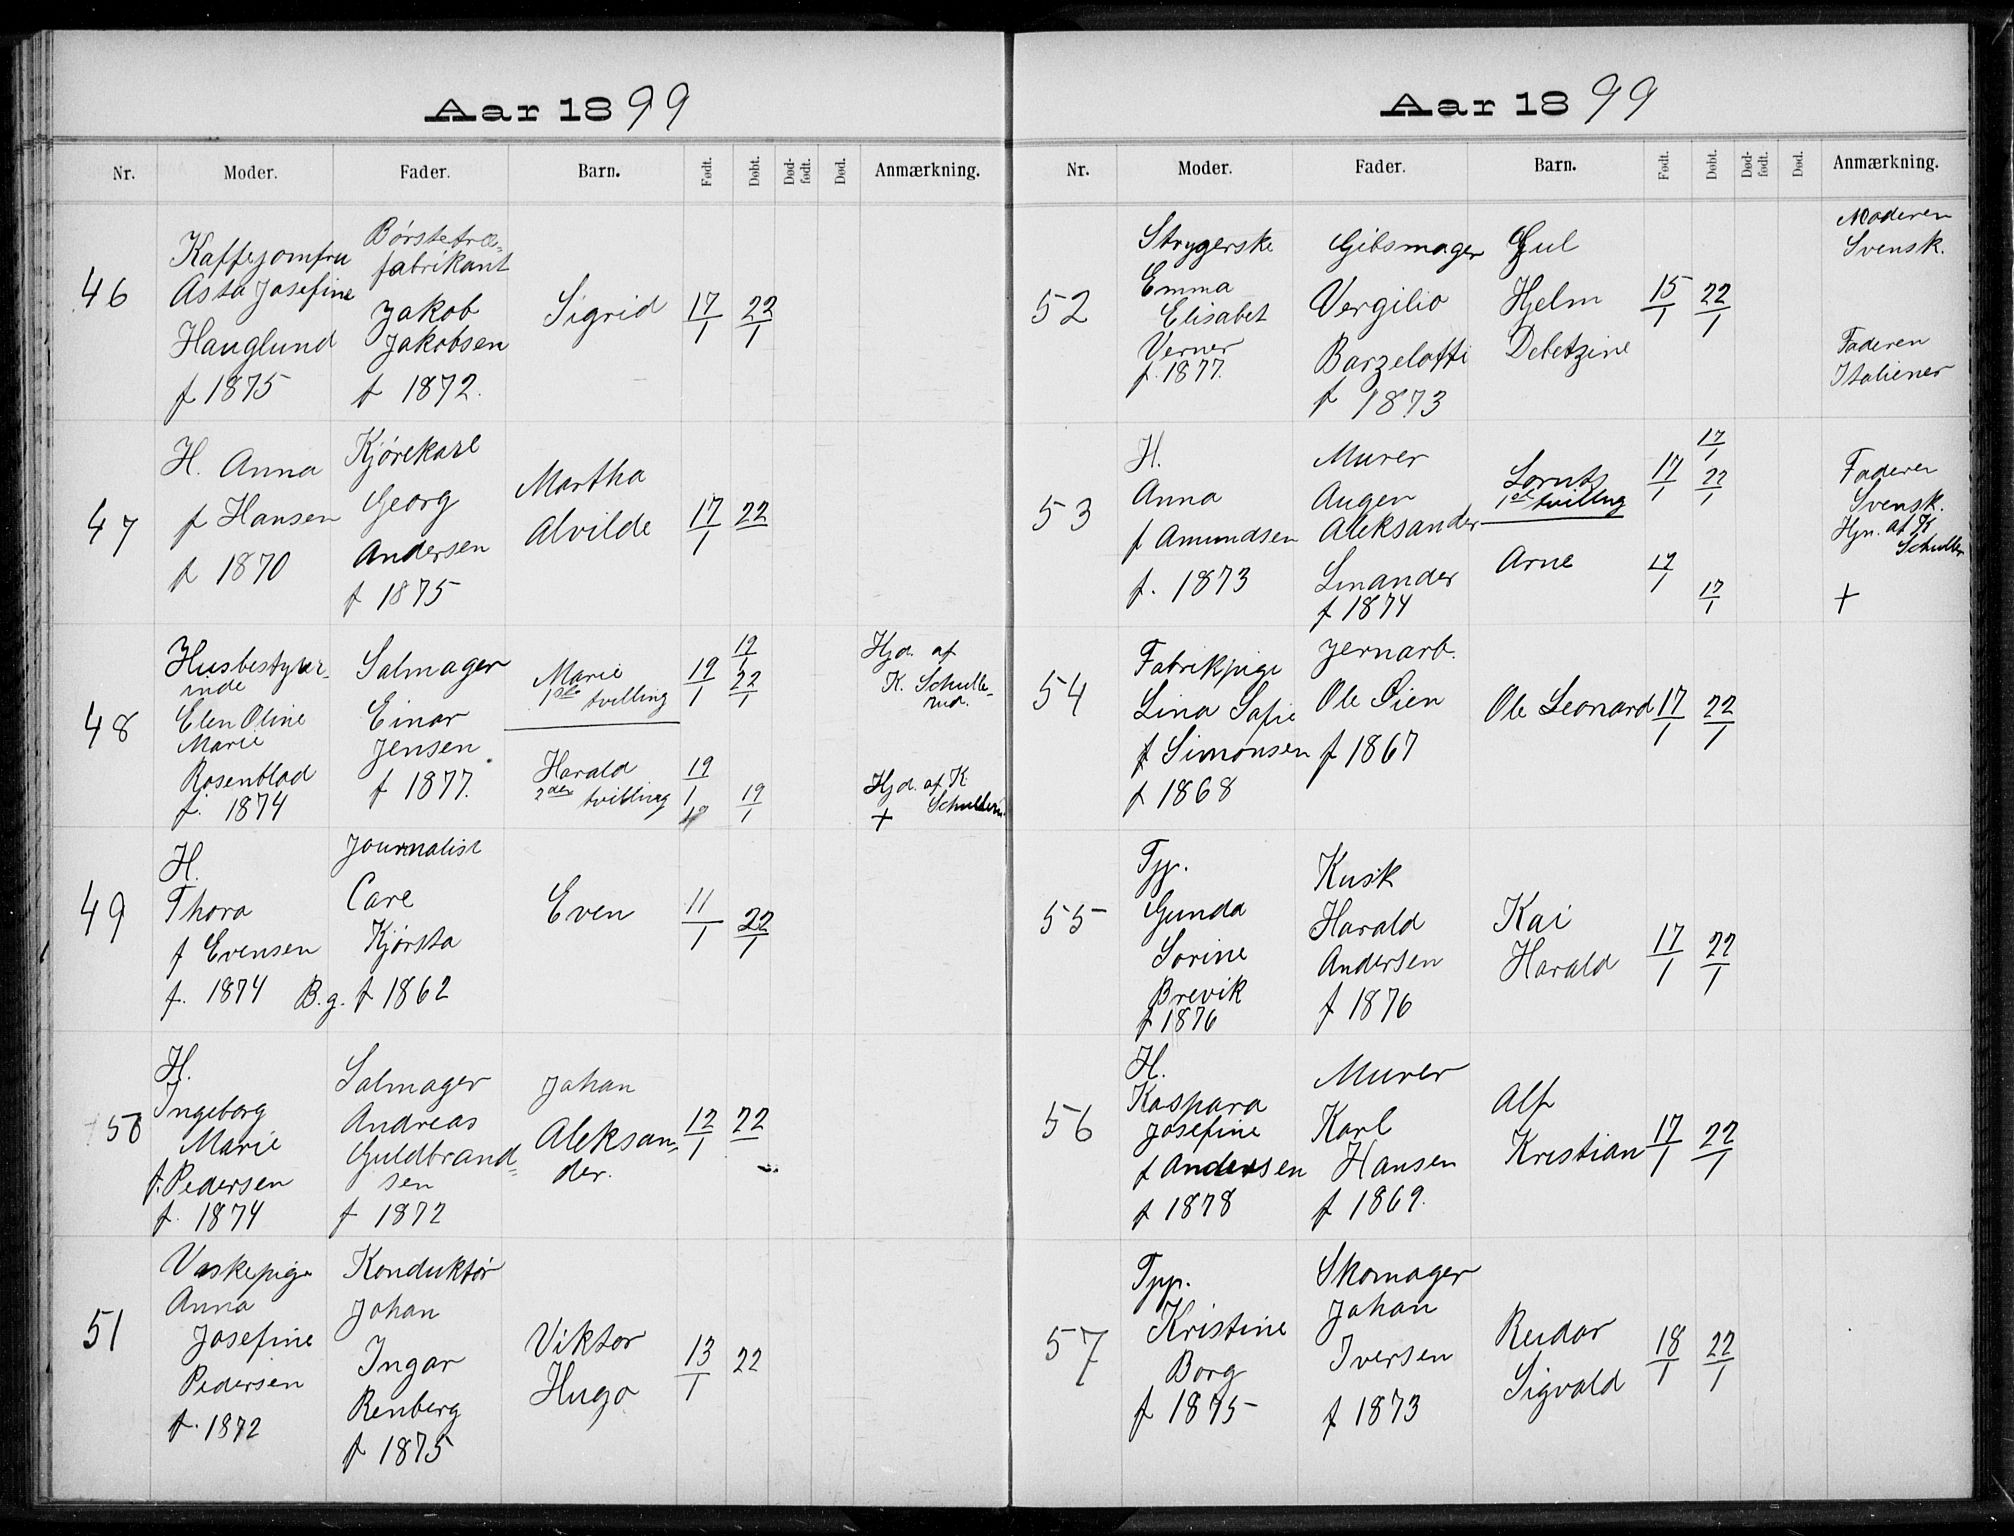 Aar 1899
Nr. Moder. Fader. Barn. Født. Døbt. Død-født. Død. Anmærkning.
46
Kaffejomfru
Asta Josefine
Hauglund
f 1875
Børstetræ-
fabrikant
Jakob
Jakobsen
f 1872.
Sigrid
17/1
22/1
47
H. Anna
f Hansen
f 1870
Kjørekarl
Georg
Andersen
f 1875
Martha
Alvilde
17/1
22
48
Husbestyrer-
inde
Elen Oline
Marie
Rosenblad
f. 1874
Salmager
Einar
Jensen
f 1877.
Marie
1ste tvilling
19/1
19/1
22/1
Hjd. af
K. Schulle-
rud.
Harald
2den tvilling
19/1
19/1
Hjd. af K.
Schullerud
+
49
H.
Thora
f Evensen
f. 1874
Journalist
Care
Kjørsta
B.g. f 1862
Even
11/1
22/1
50
H.
Ingeborg
Marie
f. Pedersen
f. 1874
Salmager
Andreas
Guldbrand-
sen
f 1872
Johan
Aleksan-
der.
12/1
22
51
Vaskepige
Anna
Josefine
Pedersen
f. 1872
Konduktør
Johan
Ingar
Renberg
f 1875
Viktor
Hugo
13/1
22
Aar 1899
Nr. Moder. Fader. Barn. Født. Døbt. Død-født. Død. Anmærkning.
52
Strygerske
Emma
Elisabet
Verner
f. 1877.
Gibsmager
Vergilio
Barzelotti
f 1873
Gul
Hjelm
Debetzine
15/1
22/1
Moderen
Svensk.
Faderen
Italiener
53
H.
Anna
f Amundsen
f. 1873
Murer
Augen
Aleksander
Linander
f 1874
Lornts
1ste tvilling
17/1
17/1
22/1
Faderen
Svensk.
Hjn. af K
Schuller
Arne
17/1
17/1
+
54
Fabrikpige
Lina Sofie
f Simonsen
f 1868
Jernarb.
Ole Øien
f 1867
Ole Leonard
17/1
22/1
55
Tjp.
Gunda
Sorine
Brevik
f 1876
Kusk
Harald
Andersen
f 1876
Kai
Harald
17/1
22/1
56
H.
Kaspara
Josefine
f Andersen
f 1878
Murer
Karl
Hansen
f 1869.
Alf
Kristian
17/1
22/1
57
Tjp.
Kristine
Borg
f 1875
Skomager
Johan
Iversen
f 1873
Reidar
Sigvald
18/1
22/1